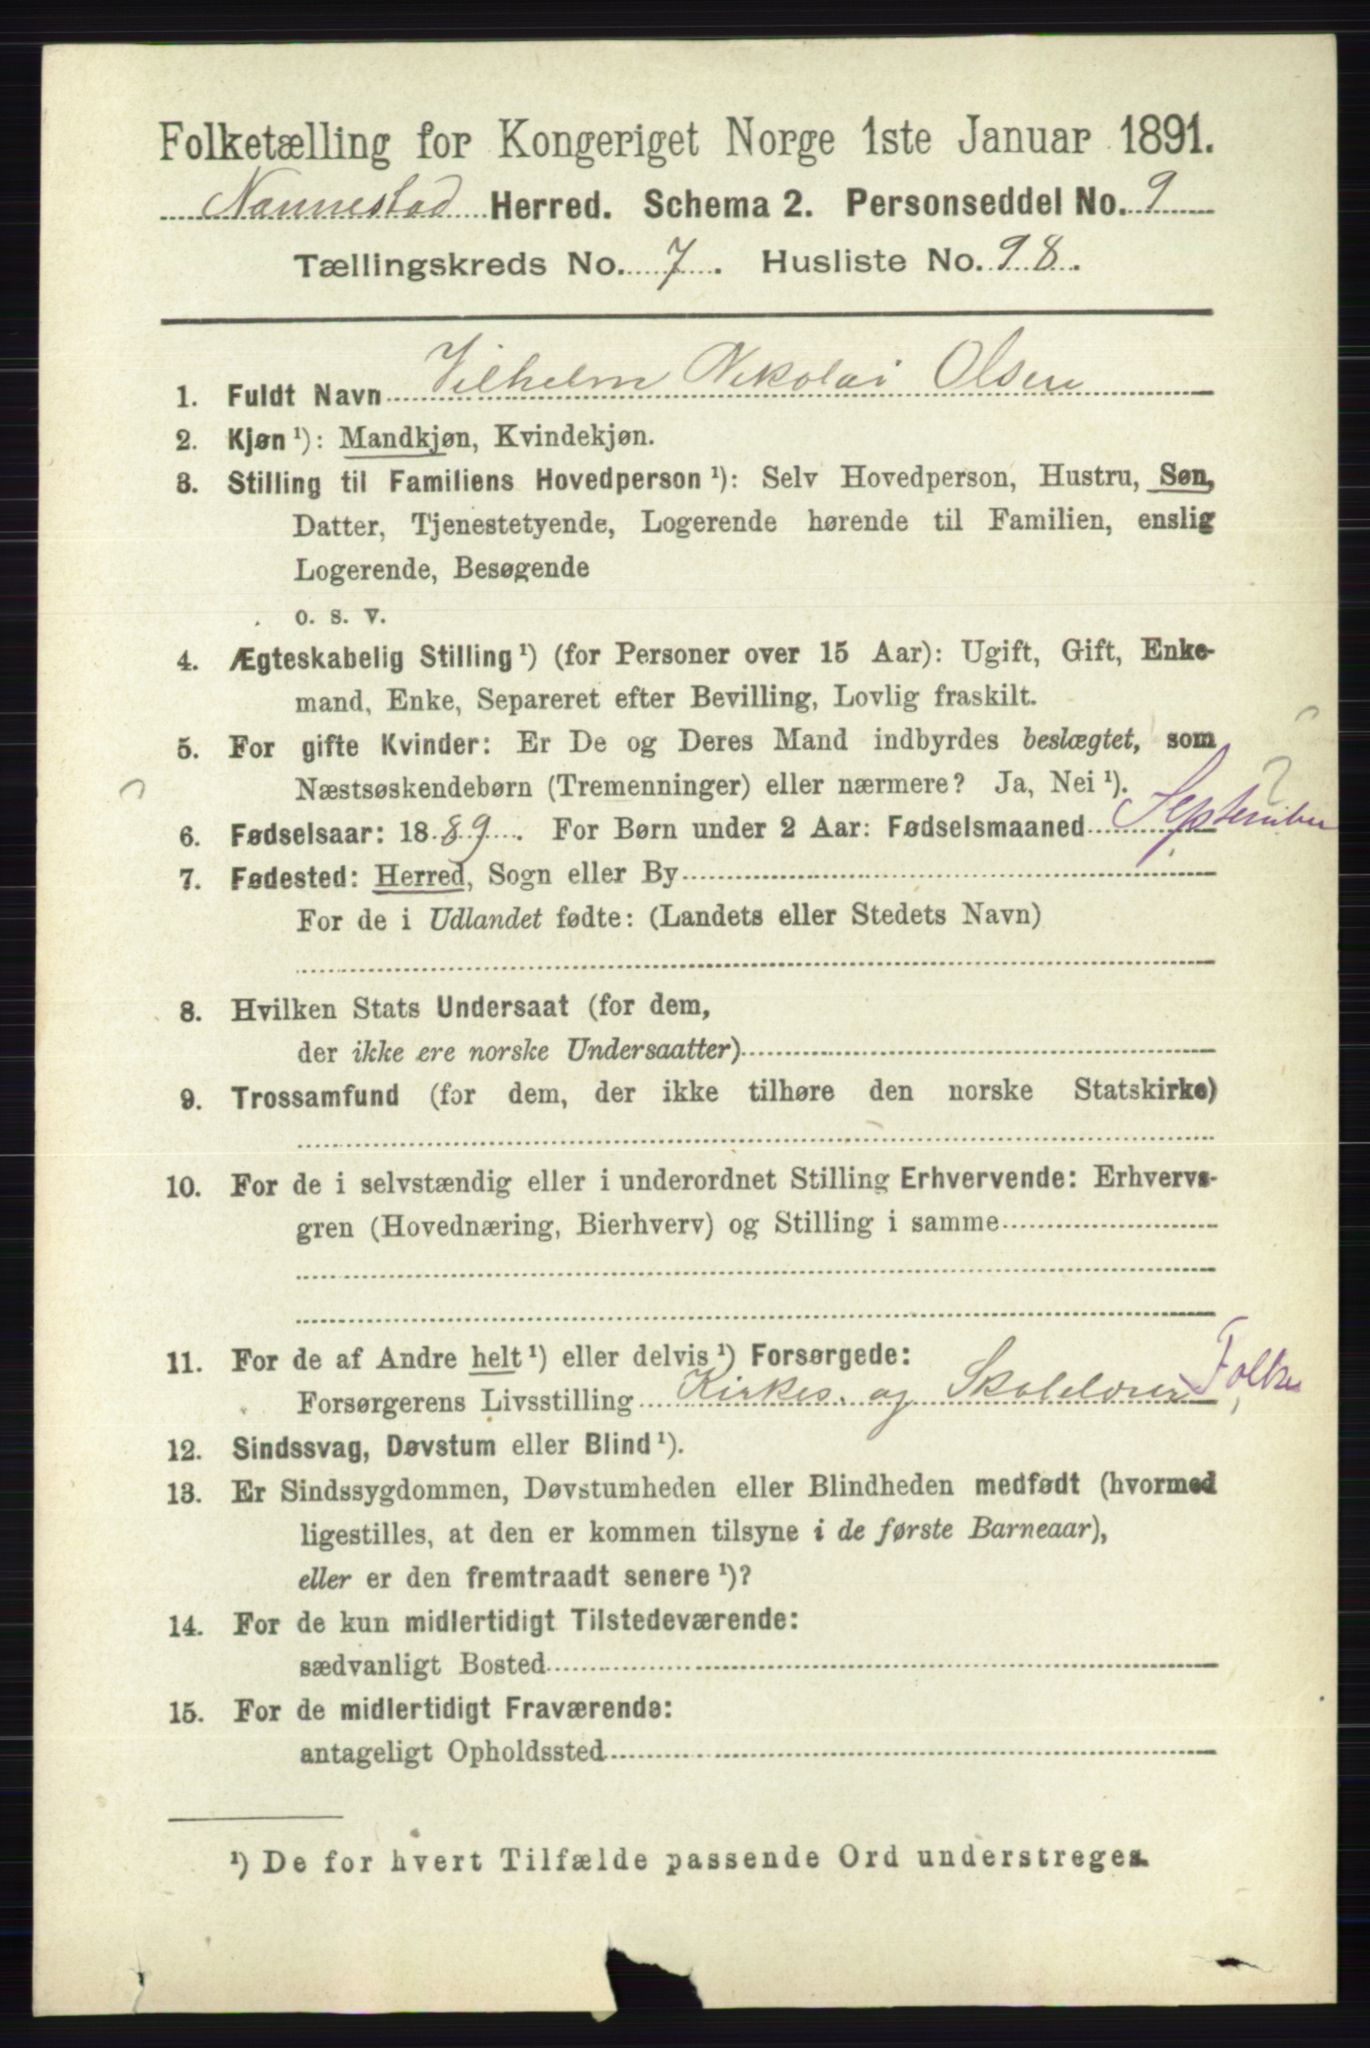 Folketælling for Kongeriget Norge 1ste Januar 1891.
Nannestad Herred. Schema 2. Personseddel No. 9
Tællingskreds No. 7. Husliste No. 98.
1. Fuldt Navn Vilhelm Nikolai Olsen
2. Kjøn ¹): Mandkjøn, Kvindekjøn.
3. Stilling til Familiens Hovedperson ¹): Selv Hovedperson, Hustru, Søn,
Datter, Tjenestetyende, Logerende hørende til Familien, enslig
Logerende, Besøgende
o. s. v.
4. Ægteskabelig Stilling ¹) (for Personer over 15 Aar): Ugift, Gift, Enke-
mand, Enke, Separeret efter Bevilling, Lovlig fraskilt.
5. For gifte Kvinder: Er De og Deres Mand indbyrdes beslægtet, som
Næstsøskendebørn (Tremenninger) eller nærmere? Ja, Nei ¹).
?
6. Fødselsaar: 1889. For Børn under 2 Aar: Fødselsmaaned September
7. Fødested: Herred, Sogn eller By
For de i Udlandet fødte: (Landets eller Stedets Navn)
8. Hvilken Stats Undersaat (for dem,
der ikke ere norske Undersaatter)
9. Trossamfund (for dem, der ikke tilhøre den norske Statskirke)
10. For de i selvstændig eller i underordnet Stilling Erhvervende: Erhvervs-
gren (Hovednæring, Bierhverv) og Stilling i samme
11. For de af Andre helt ¹) eller delvis ¹) Forsørgede:
Forsørgerens Livsstilling Kirkes. og Skolelærer Folke
12. Sindssvag, Døvstum eller Blind ¹).
13. Er Sindssygdommen, Døvstumheden eller Blindheden medfødt (hvormed
ligestilles, at den er kommen tilsyne i de første Barneaar),
eller er den fremtraadt senere ¹)?
14. For de kun midlertidigt Tilstedeværende:
sædvanligt Bosted
15. For de midlertidigt Fraværende:
antageligt Opholdssted
¹) De for hvert Tilfælde passende Ord understreges.